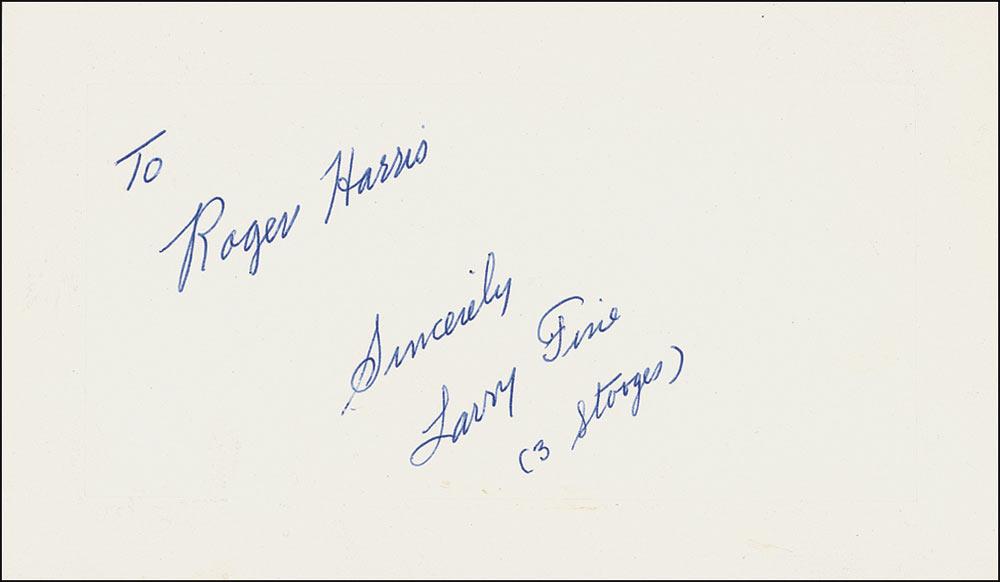 To
Roger Harris
Sincerely
Larry Fine
(3 Stooges)